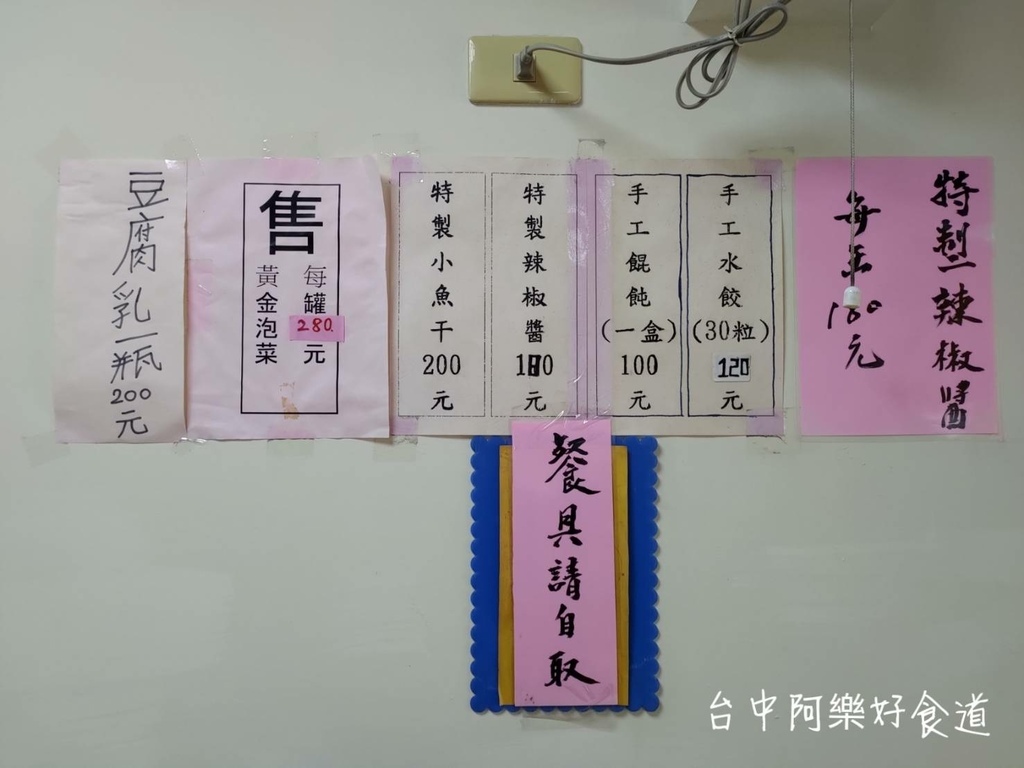 豆腐乳一瓶200元
售
黃金泡菜
每罐280元
特製小魚干200元
特製辣椒醬180元
手工餛飩(一盒)100元
手工水餃(30粒)120元
特製辣椒醬
每 180元
餐具請自取
台中阿樂好食道